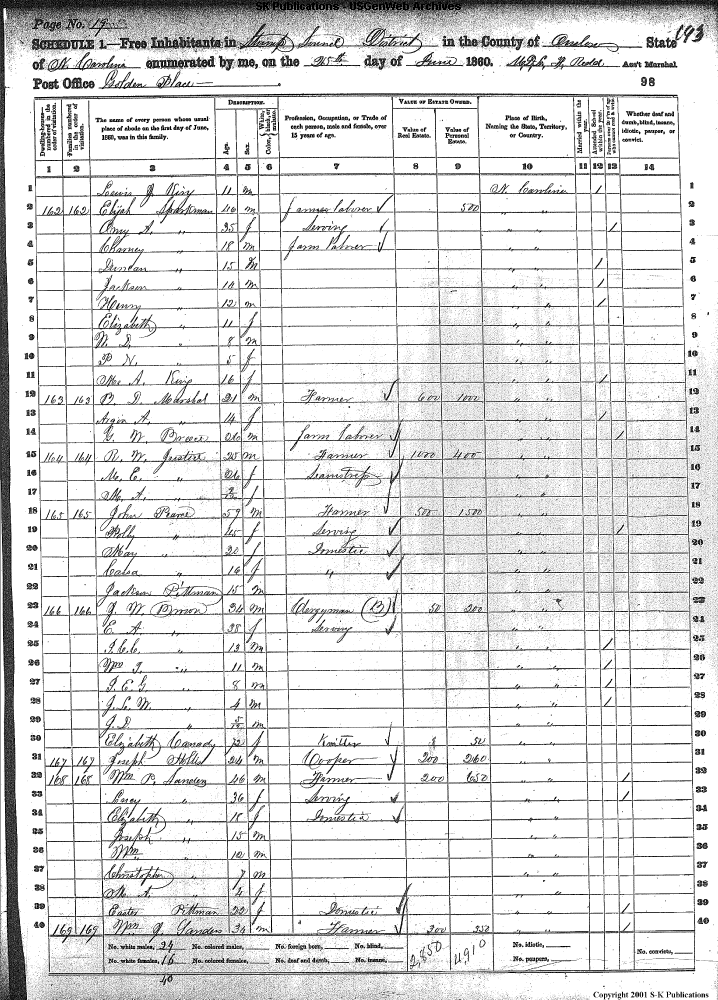 SK Publications - USGenWeb Archives
Page No. 19
193
SCHEDULE 1.—Free Inhabitants in Stump Sound District in the County of Onslow State
of N. Carolina enumerated by me, on the 25th day of June 1860. Ass't Marshal
Post Office Golden Place
98
DESCRIPTION. VALUE OF ESTATE OWNED.
Dwelling-houses numbered in the order of visitation. Families numbered in the order of visitation. The name of every person whose usual place of abode on the first day of June, 1860, was in this family. Age. Sex. Color, White, black, or mulatto. Profession, Occupation, or Trade of each person, male and female, over 15 years of age. Value of Real Estate. Value of Personal Estate. Place of Birth, Naming the State, Territory, or Country. Married within the year. Attended School within the year. Whether deaf and dumb, blind, insane, idiotic, pauper, or convict.
1 2 3 4 5 6 7 8 9 10 11 12 13 14
1 Lewis J King 11 m N. Carolina / 1
2 162 162 Elijah Sparkman 46 m farmer laborer ✓ 500 " " 2
3 Amy A. " 35 f Serving ✓ " " / 3
4 18 m farm laborer ✓ " " 4
5 Duncan " 15 m " " / 5
6 Jackson " 14 m " " / 6
7 Henry " 12 m " " / 7
8 Elizabeth " 11 f " " 8
9 W. D. " 8 m " " 9
10 P. N. " 5 f " " 10
11 M. A. King 16 f " " / 11
12 163 163 B. D. Marshal 21 m Farmer ✓ 600 1000 " " 12
13 A. " 14 f " " / 13
14 G. W. 20 m farm laborer ✓ " " / 14
15 164 164 R. W. Justice 25 m Farmer ✓ 1000 400 " " 15
16 M. E. " 26 f Seamstress ✓ " " 16
17 M. A. " f " " 17
18 165 165 John Pearce 59 m Farmer ✓ 500 1500 " " 18
19 Holly " 45 f Serving ✓ " " / 19
20 May " 20 f Domestic ✓ " " 20
21 " 16 f " ✓ " " 21
22 Jackson Pittman 15 m " " 22
23 166 166 J. W. Brown 34 m Clergyman (B) ✓ 50 200 " " 23
24 E. A. " 38 f Serving ✓ " " 24
25 J. C. C. " 13 m " " / 25
26 Wm J. " 11 m " " / 26
27 J. E. G. " 8 m " " / 27
28 J. L. W. " 4 m " " / 28
29 J. D. " 5/12 m " " 29
30 Elizabeth Canady 72 f Knitter ✓ 50 " " 30
31 167 167 Joseph 24 m Cooper ✓ 200 260 " " 31
32 168 168 Wm P. Sanders 46 m Farmer ✓ 200 650 " " / 32
33 " 36 f Serving ✓ " " / 33
34 Elizabeth " 18 f Domestic ✓ " " 34
35 Joseph " 15 m " " 35
36 Wm " 10 m " " 36
37 Christopher " 7 m " " 37
38 M. A. " 4 f " " 38
39 Easter Pittman 22 f Domestic ✓ " " / 39
40 169 169 Wm J. Sanders 34 m Farmer ✓ 300 350 " " / 40
No. white males, 24 No. colored males, No. foreign born, No. blind, 2,850 4,910 No. idiotic, No. convicts,
No. white females, 16 No. colored females, No. deaf and dumb, No. insane, No. paupers,
40
Copyright 2001 S-K Publications